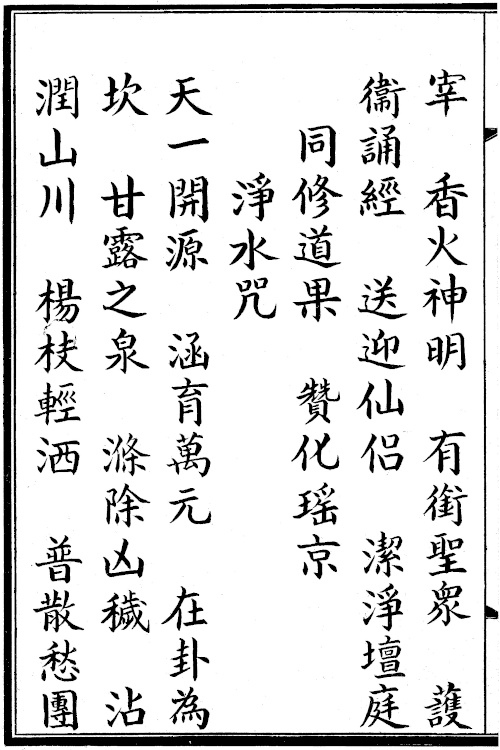 宰　香火神明　有銜聖眾　護
衞誦經　送迎仙侶　潔淨壇庭
同修道果　贊化瑶京
淨水咒
天一開源　涵育萬元　在卦為
坎　甘露之泉　滌除凶穢　沾
潤山川　楊枝輕洒　普散愁團